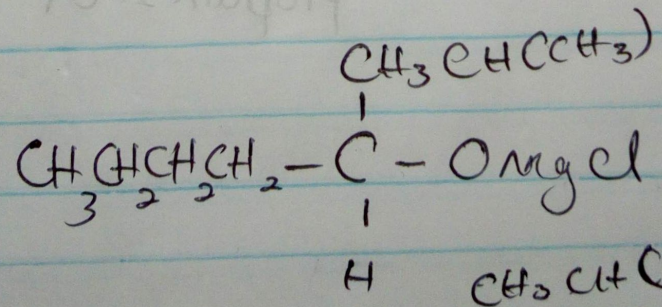 CH₃CH(CH₃)
CH₃CH₂CH₂CH₂-C-OMgCl
H
CH₃CHC